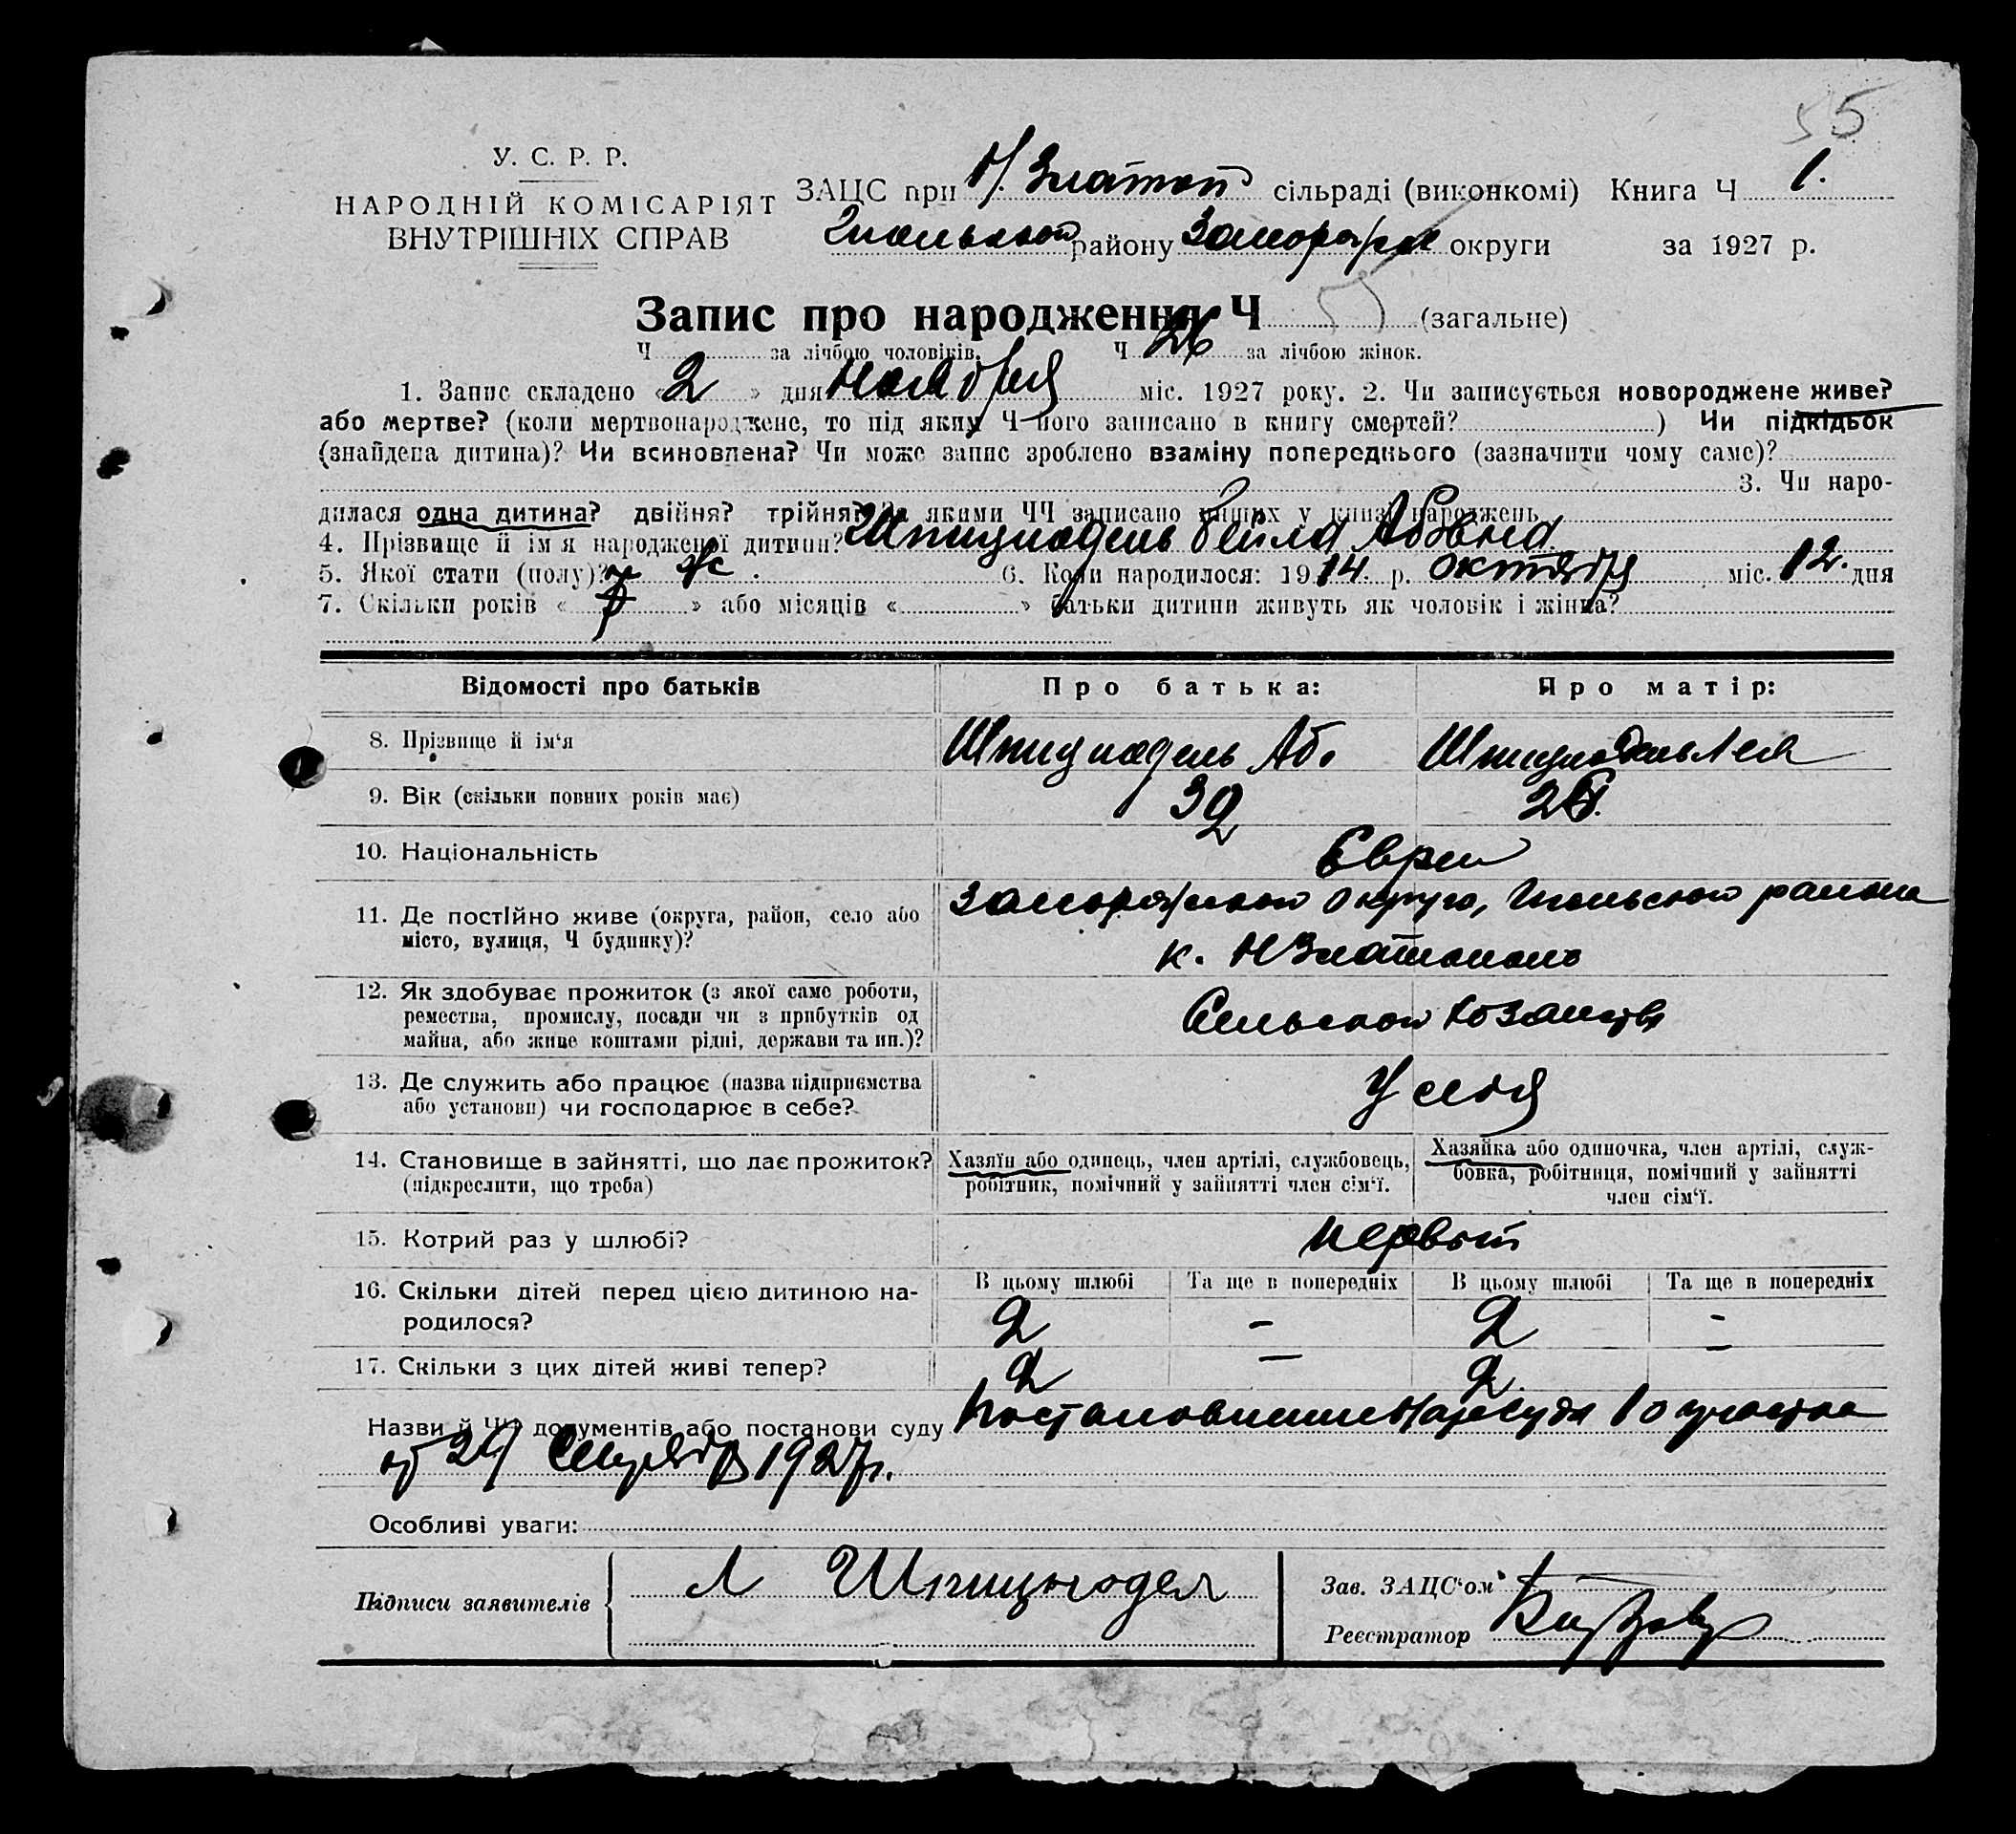 55
У. С. Р. Р.
НАРОДНІЙ КОМІСАРІЯТ
ВНУТРІШНІХ СПРАВ
ЗАЦС при Н/Златоп сільраді (виконкомі) Книга Ч 1.
району округи за 1927 р.
Запис про народження Ч 5 (загальне)
Ч за лічбою чоловіків. Ч 26 за лічбою жінок.
1. Запис складено «2» дня Ноября міс. 1927 року. 2. Чи записується новороджене живе?
або мертве? (коли мертвонароджене, то під яким Ч його записано в книгу смертей? ) Чи підкідьок
(знайдена дитина)? Чи всиновлена? Чи може запис зроблено взаміну попереднього (зазначити чому саме)?
3. Чи наро-
дилася одна дитина? двійня? трійня? За якими ЧЧ записано инших у книзі народжень
4. Прізвище й ім'я народженої дитини? Шпицнадель Бейла Абовна
5. Якої стати (полу)? Ж. 6. Коли народилося: 1914 р. октября міс. 12. дня
7. Скільки років « » або місяців « » батьки дитини живуть як чоловік і жінка?
Відомості про батьків Про батька: Про матір:
8. Прізвище й ім'я Шпицнадель Аб. Шпицнадель Лея
9. Вік (скільки повних років має) 32
10. Національність Евреи
11. Де постійно живе (округа, район, село або
місто, вулиця, Ч будинку)?
округа, района
к. НЗлатополь
12. Як здобуває прожиток (з якої саме роботи,
ремества, промислу, посади чи з прибутків од
майна, або живе коштами рідні, держави та ин.)?
Сельском хозайства
13. Де служить або працює (назва підприємства
або установи) чи господарює в себе?
У себя
14. Становище в зайнятті, що дає прожиток?
(підкреслити, що треба)
Хазяїн або одинець, член артілі, службовець,
робітник, помічний у зайнятті член сім'ї.
Хазяйка або одиночка, член артілі, служ-
бовка, робітниця, помічний у зайнятті
член сім'ї.
15. Котрий раз у шлюбі? первый
16. Скільки дітей перед цією дитиною на-
родилося?
В цьому шлюбі Та ще в попередніх В цьому шлюбі Та ще в попередніх
2 – 2 –
17. Скільки з цих дітей живі тепер? 2 – 2 –
Назви й ЧЧ документів або постанови суду Постановление Нарсуда 10 участка
от 24 1927 г.
Особливі уваги:
Підписи заявителів Л Шпицнодел
Зав. ЗАЦС'ом
Реєстратор